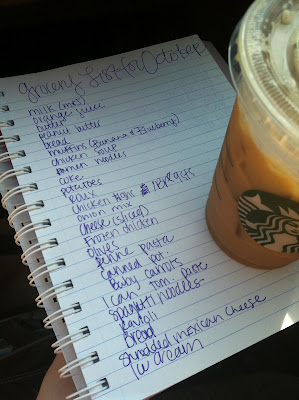 Grocery List for October
milk (mrs)
orange juice
butter
peanut butter
bread
muffins (Banana & Blueberry)
chicken soup
ramen noodles
coke
potatoes
Roux
chicken thighs
onion mix
cheese (sliced)
Frozen chicken
olives
penne pasta
canned cat.
Baby carrots
1 can tom. paste
spaghetti noodles
Ravioli
Bread
shredded mexican cheese
ice cream